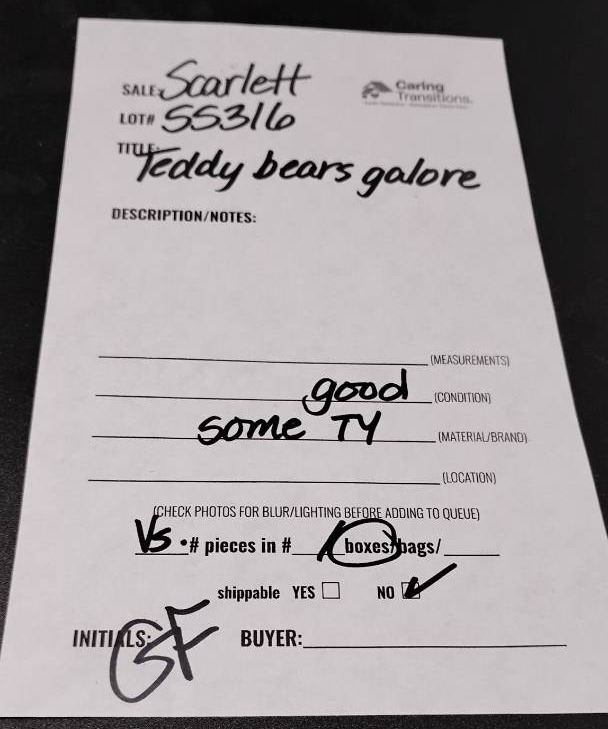 SALE: Scarlett
Caring
Transitions.
LOT# SS316
TITLE: Teddy bears galore
DESCRIPTION/NOTES:
(MEASUREMENTS)
good (CONDITION)
some TY (MATERIAL/BRAND)
(LOCATION)
(CHECK PHOTOS FOR BLUR/LIGHTING BEFORE ADDING TO QUEUE)
Vs # pieces in # 1 boxes/bags/
shippable YES ☐ NO ☑
INITIALS: GF BUYER: